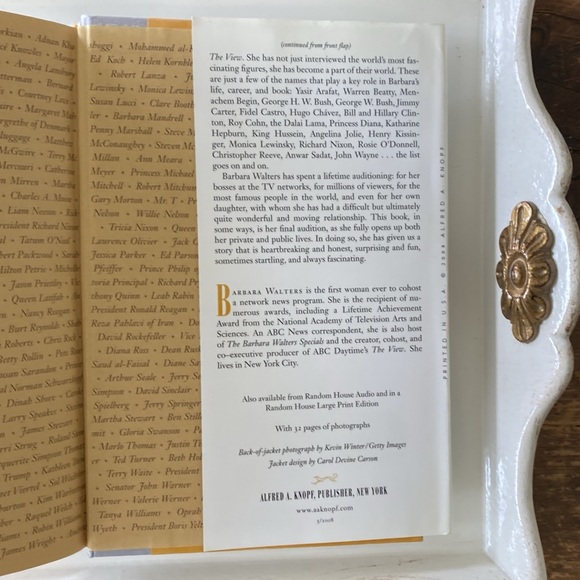 Adnan Kha
Knowles • Mayor
Angela Lansbury
Courtney Love
Margaret
Grethe of Denmark
McGwire • Terry
Mercouri • Catherine
Mirren • Marta
Charles A. Moose
Liam Neeson •
President Richard Nixon
Tatum O'Neal •
Packwood • Sarah
Hilton Petrie • Michelle
Jason Priestley • Vic
Queen Latifah •
Nancy Reagan •
Burt Reynolds •
Roberts • Chris Rock
Betty Rollin •
Susan Sarandon •
Norman Schwarzkopf
Dinah Shore •
Larry Speakes •
James Stewart •
Kerri Strug •
Marquerite Simpson
Trump •
Raquel Welch
Robin
James Wright •
shoggi • Mohammed al-K
Ed Koch • Helen Kornblu
Robert Lanza • J
Lewinsky • Monica Lewins
Susan Lucci • Clare Booth
Barbara Mandrell •
Penny Marshall • Steve M
McConaughey • Steven M
Millan • Ann Meara •
Meyer • Princess Michael
Mitchell • Robert Mitchum
Gary Morton • Mr. T • Pr
Nelson • Willie Nelson •
Tricia Nixon • Queen
Laurence Olivier • Jack O
Jessica Parker • Ed Parson
Pfeiffer • Prince Philip •
toria Principal • Richard Pr
thony Quinn • Leah Rabin
President Ronald Reagan •
Reza Pahlavi of Iran • D
David Rockefeller • Vice
Diana Ross • Dean Rusk
Saud al-Faisal • Diane Sa
Arthur Seale • Jerry Se
Simpson • David Sinclair •
Spielberg • Jerry Springer
Martha Stewart • Ben Still
mit • Gloria Swanson • P
Marlo Thomas • Justin Ti
Ted Turner • Beth Ho
Terry Waite • President
Senator John Warner •
Warner • Valerie Werner •
Tanya Williams • Oprah
Wyeth • President Boris Yelt
(continued from front flap)
The View. She has not just interviewed the world's most fas-
cinating figures, she has become a part of their world. These
are just a few of the names that play a key role in Barbara's
life, career, and book: Yasir Arafat, Warren Beatty, Men-
achem Begin, George H. W. Bush, George W. Bush, Jimmy
Carter, Fidel Castro, Hugo Chávez, Bill and Hillary Clin-
ton, Roy Cohn, the Dalai Lama, Princess Diana, Katharine
Hepburn, King Hussein, Angelina Jolie, Henry Kissin-
ger, Monica Lewinsky, Richard Nixon, Rosie O'Donnell,
Christopher Reeve, Anwar Sadat, John Wayne . . . the list
goes on and on.
Barbara Walters has spent a lifetime auditioning: for her
bosses at the TV networks, for millions of viewers, for the
most famous people in the world, and even for her own
daughter, with whom she has had a difficult but ultimately
quite wonderful and moving relationship. This book, in
some ways, is her final audition, as she fully opens up both
her private and public lives. In doing so, she has given us a
story that is heartbreaking and honest, surprising and fun,
sometimes startling, and always fascinating.
BARBARA WALTERS is the first woman ever to cohost
a network news program. She is the recipient of nu-
merous awards, including a Lifetime Achievement
Award from the National Academy of Television Arts and
Sciences. An ABC News correspondent, she is also host
of The Barbara Walters Specials and the creator, cohost, and
co–executive producer of ABC Daytime's The View. She
lives in New York City.
Also available from Random House Audio and in a
Random House Large Print Edition
With 32 pages of photographs
Back-of-jacket photograph by Kevin Winter/Getty Images
Jacket design by Carol Devine Carson
ALFRED A. KNOPF, PUBLISHER, NEW YORK
www.aaknopf.com
5/2008
PRINTED IN U.S.A. © 2008 ALFRED A. KNOPF